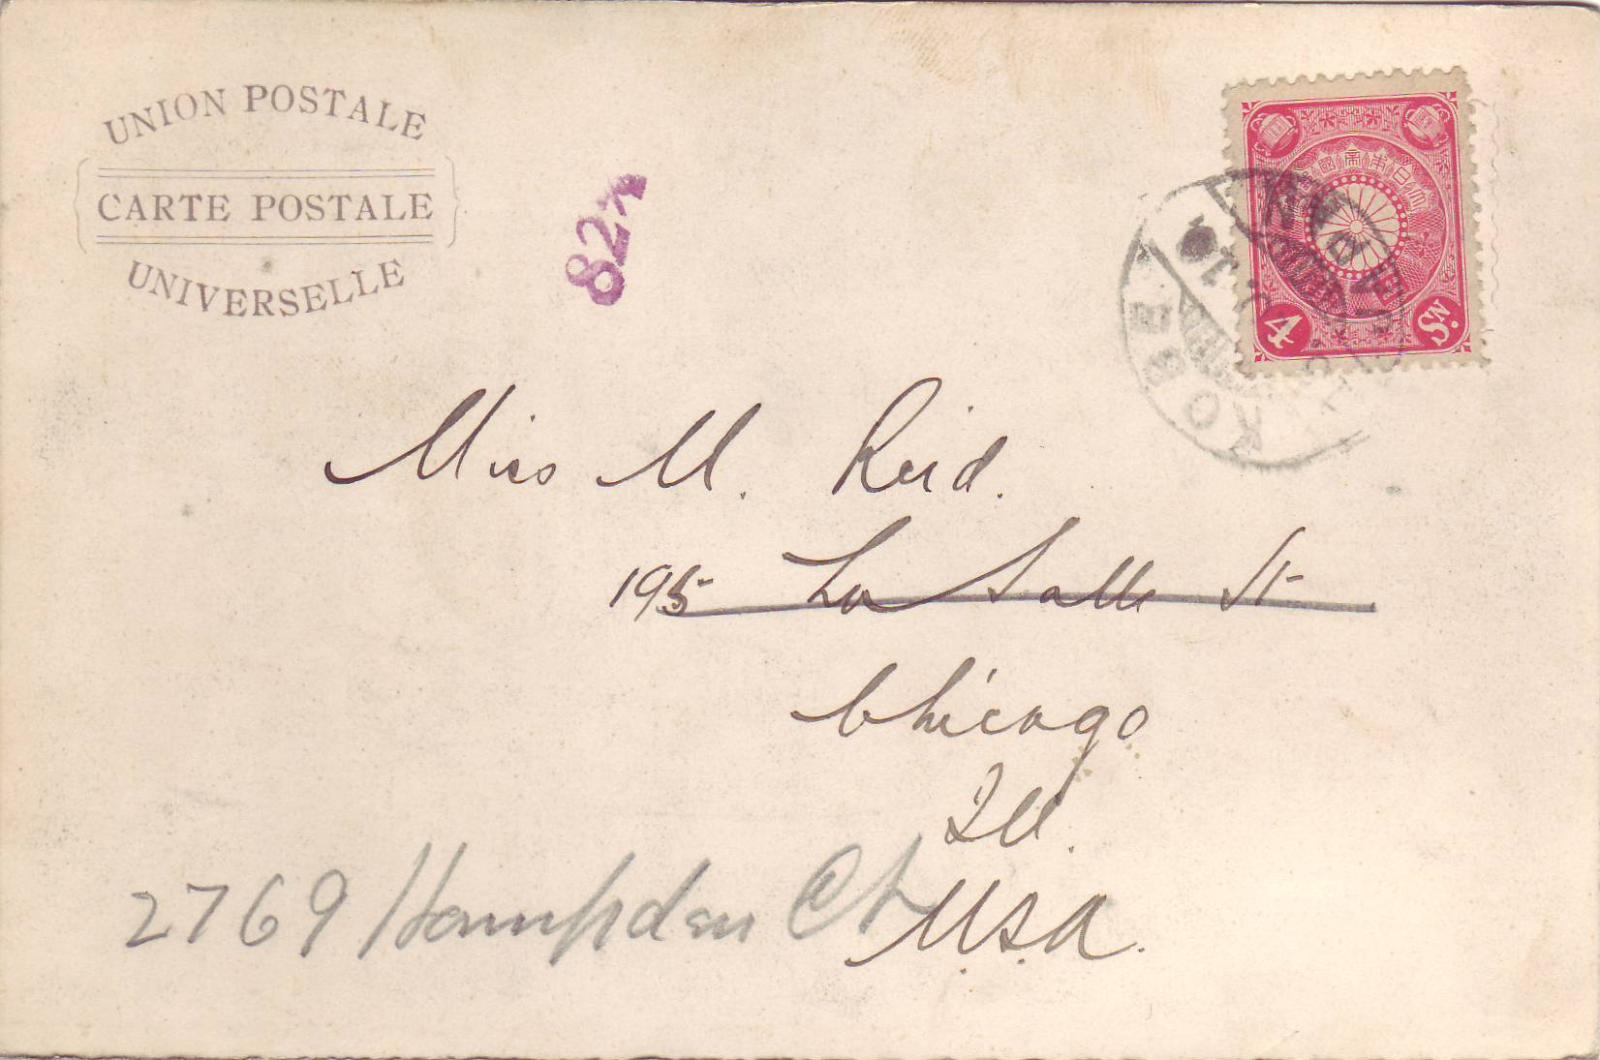 UNION POSTALE
CARTE POSTALE
UNIVERSELLE
827
大日本帝國郵便
4
Sn.
KOBE
JAPAN
Miss M. Reid.
195 La Salle St
Chicago
Ill.
U.S.A.
2769 Hampden Ct